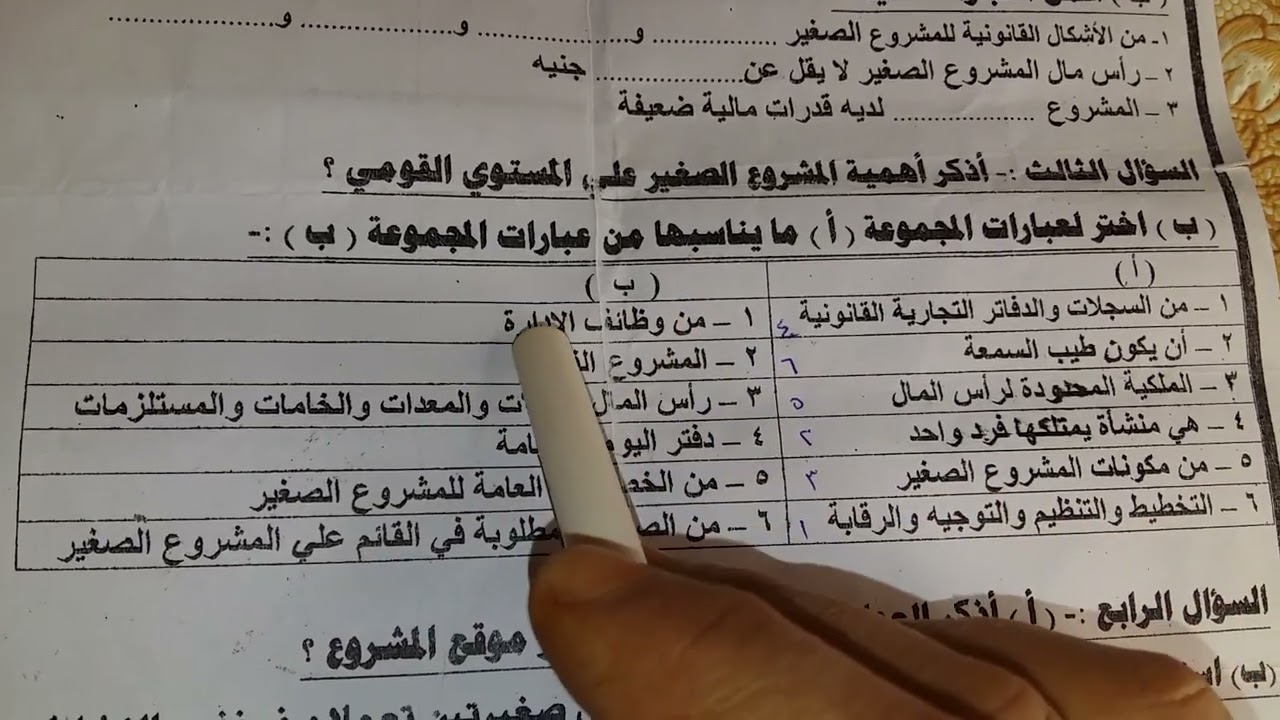 ١- من الأشكال القانونية للمشروع الصغير .................. و .................. و .................. و ..................
٢ - رأس مال المشروع الصغير لا يقل عن .................. جنيه
٣ - المشروع .................. لديه قدرات مالية ضعيفة
السؤال الثالث :- أذكر أهمية المشروع الصغير علي المستوي القومي ؟
( ب ) اختر لعبارات المجموعة ( أ ) ما يناسبها من عبارات المجموعة ( ب ) :-
( أ ) ( ب )
١ - من السجلات والدفاتر التجارية القانونية ٤ ١ - من وظائف الإدارة
٢ - أن يكون طيب السمعة ٦ ٢ - المشروع
٣ - الملكية المحدودة لرأس المال ٥ ٣ - رأس المال والمعدات والخامات والمستلزمات
٤ - هي منشأة يمتلكها فرد واحد ٢ ٤ - دفتر
٥ - من مكونات المشروع الصغير ٣ ٥ - من العامة للمشروع الصغير
٦ - التخطيط والتنظيم والتوجيه والرقابة ١ ٦ - من المطلوبة في القائم علي المشروع الصغير
السؤال الرابع :- ( أ ) أذكر موقع المشروع ؟
(ب)